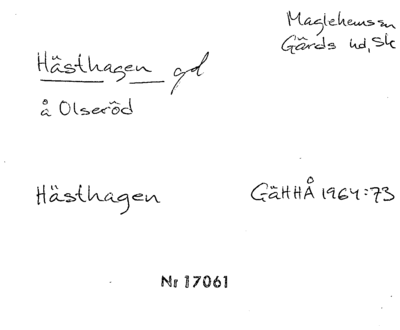 Maglehems sn
Gärds hd, Sk
Hästhagen gd
å Olseröd
Hästhagen
GäHHÅ 1964:73
Nr 17061